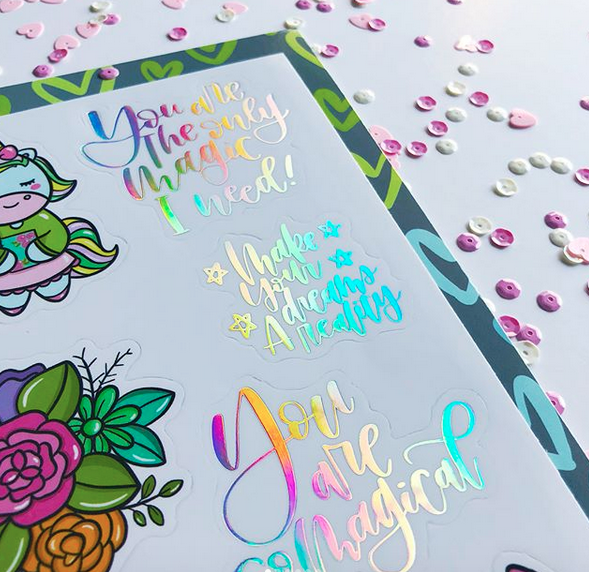 You are
The only
Magic
I need!
Make
Your
dreams
A reality
You
are
so Magical